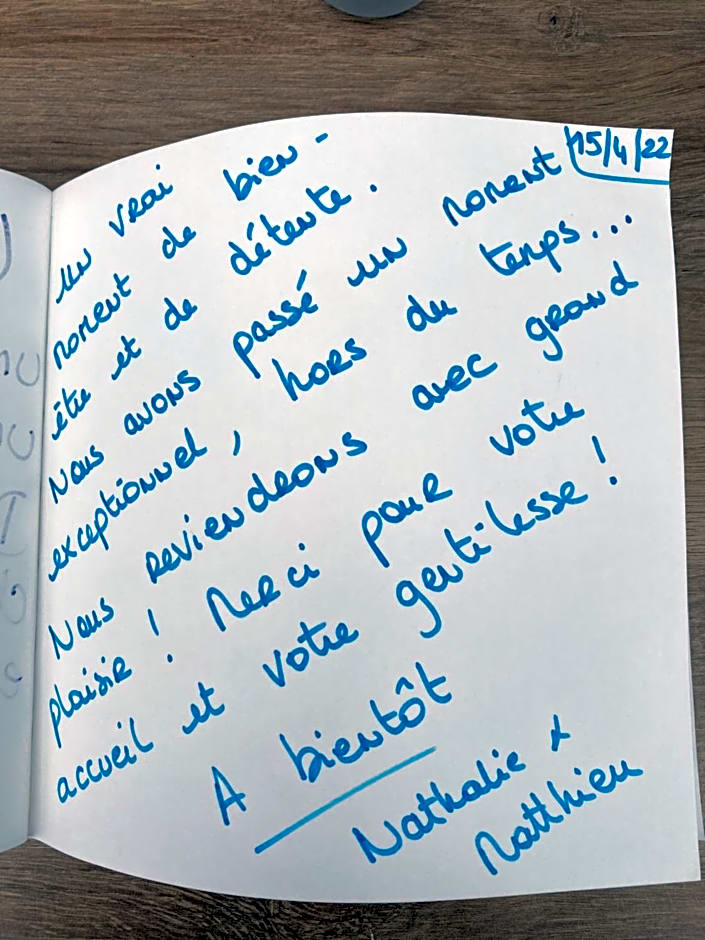 15/4/22
un vrai
moment de bien-
être et de détente.
Nous avons passé un moment
exceptionnel, hors du temps...
Nous reviendrons avec grand
plaisir ! Merci pour votre
accueil et votre gentilesse !
A bientôt
Nathalie &
Matthieu